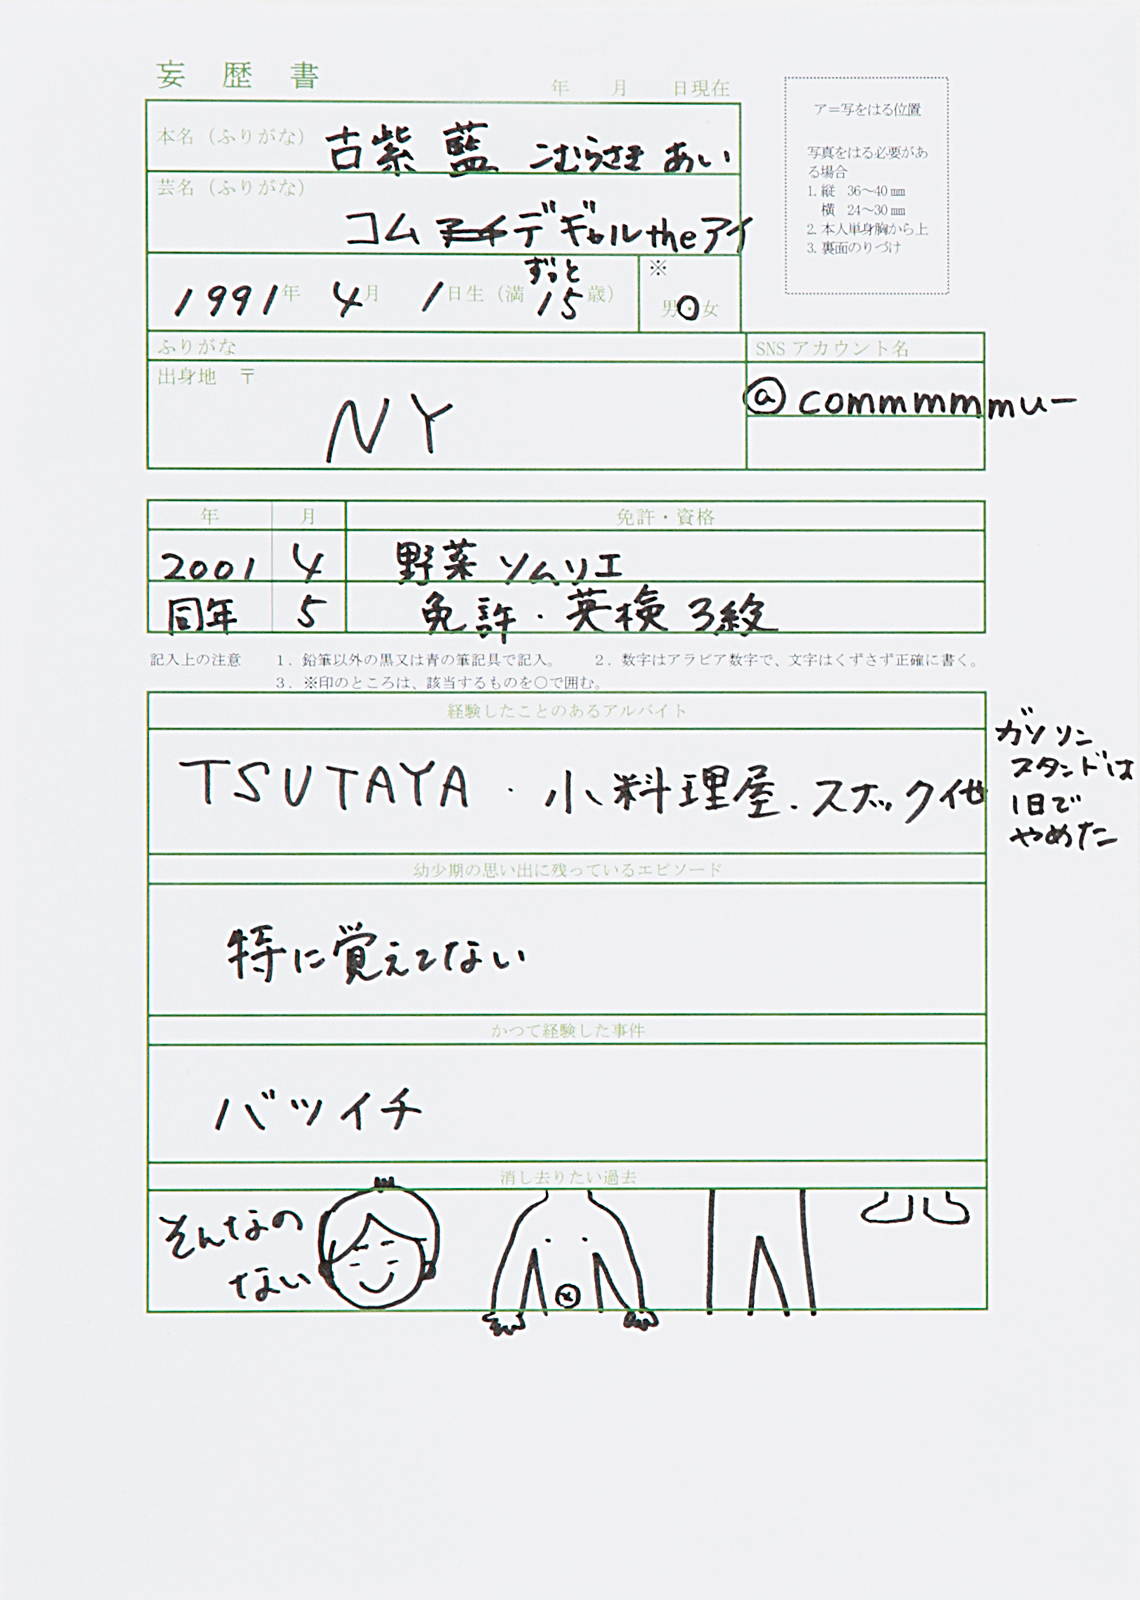 妄歴書
年 月 日現在
ア=写をはる位置
写真をはる必要があ
る場合
1.縦 36〜40㎜
横 24〜30㎜
2.本人単身胸から上
3.裏面のりづけ
本名（ふりがな） 古紫 藍 こむらさき あい
芸名（ふりがな）
コム デギャルtheアイ
ずっと
1991年 4月 1日生（満 15歳）
※
男・女
ふりがな
SNSアカウント名
出身地 〒
NY
@commmmmu-
年 月 免許・資格
2001 4 野菜ソムリエ
同年 5 免許・英検3級
記入上の注意 1．鉛筆以外の黒又は青の筆記具で記入。 2．数字はアラビア数字で、文字はくずさず正確に書く。
3．※印のところは、該当するものを○で囲む。
経験したことのあるアルバイト
TSUTAYA・小料理屋・スナック他
ガソリン
スタンドは
1日で
やめた
幼少期の思い出に残っているエピソード
特に覚えてない
かつて経験した事件
バツイチ
消し去りたい過去
そんなの
ない